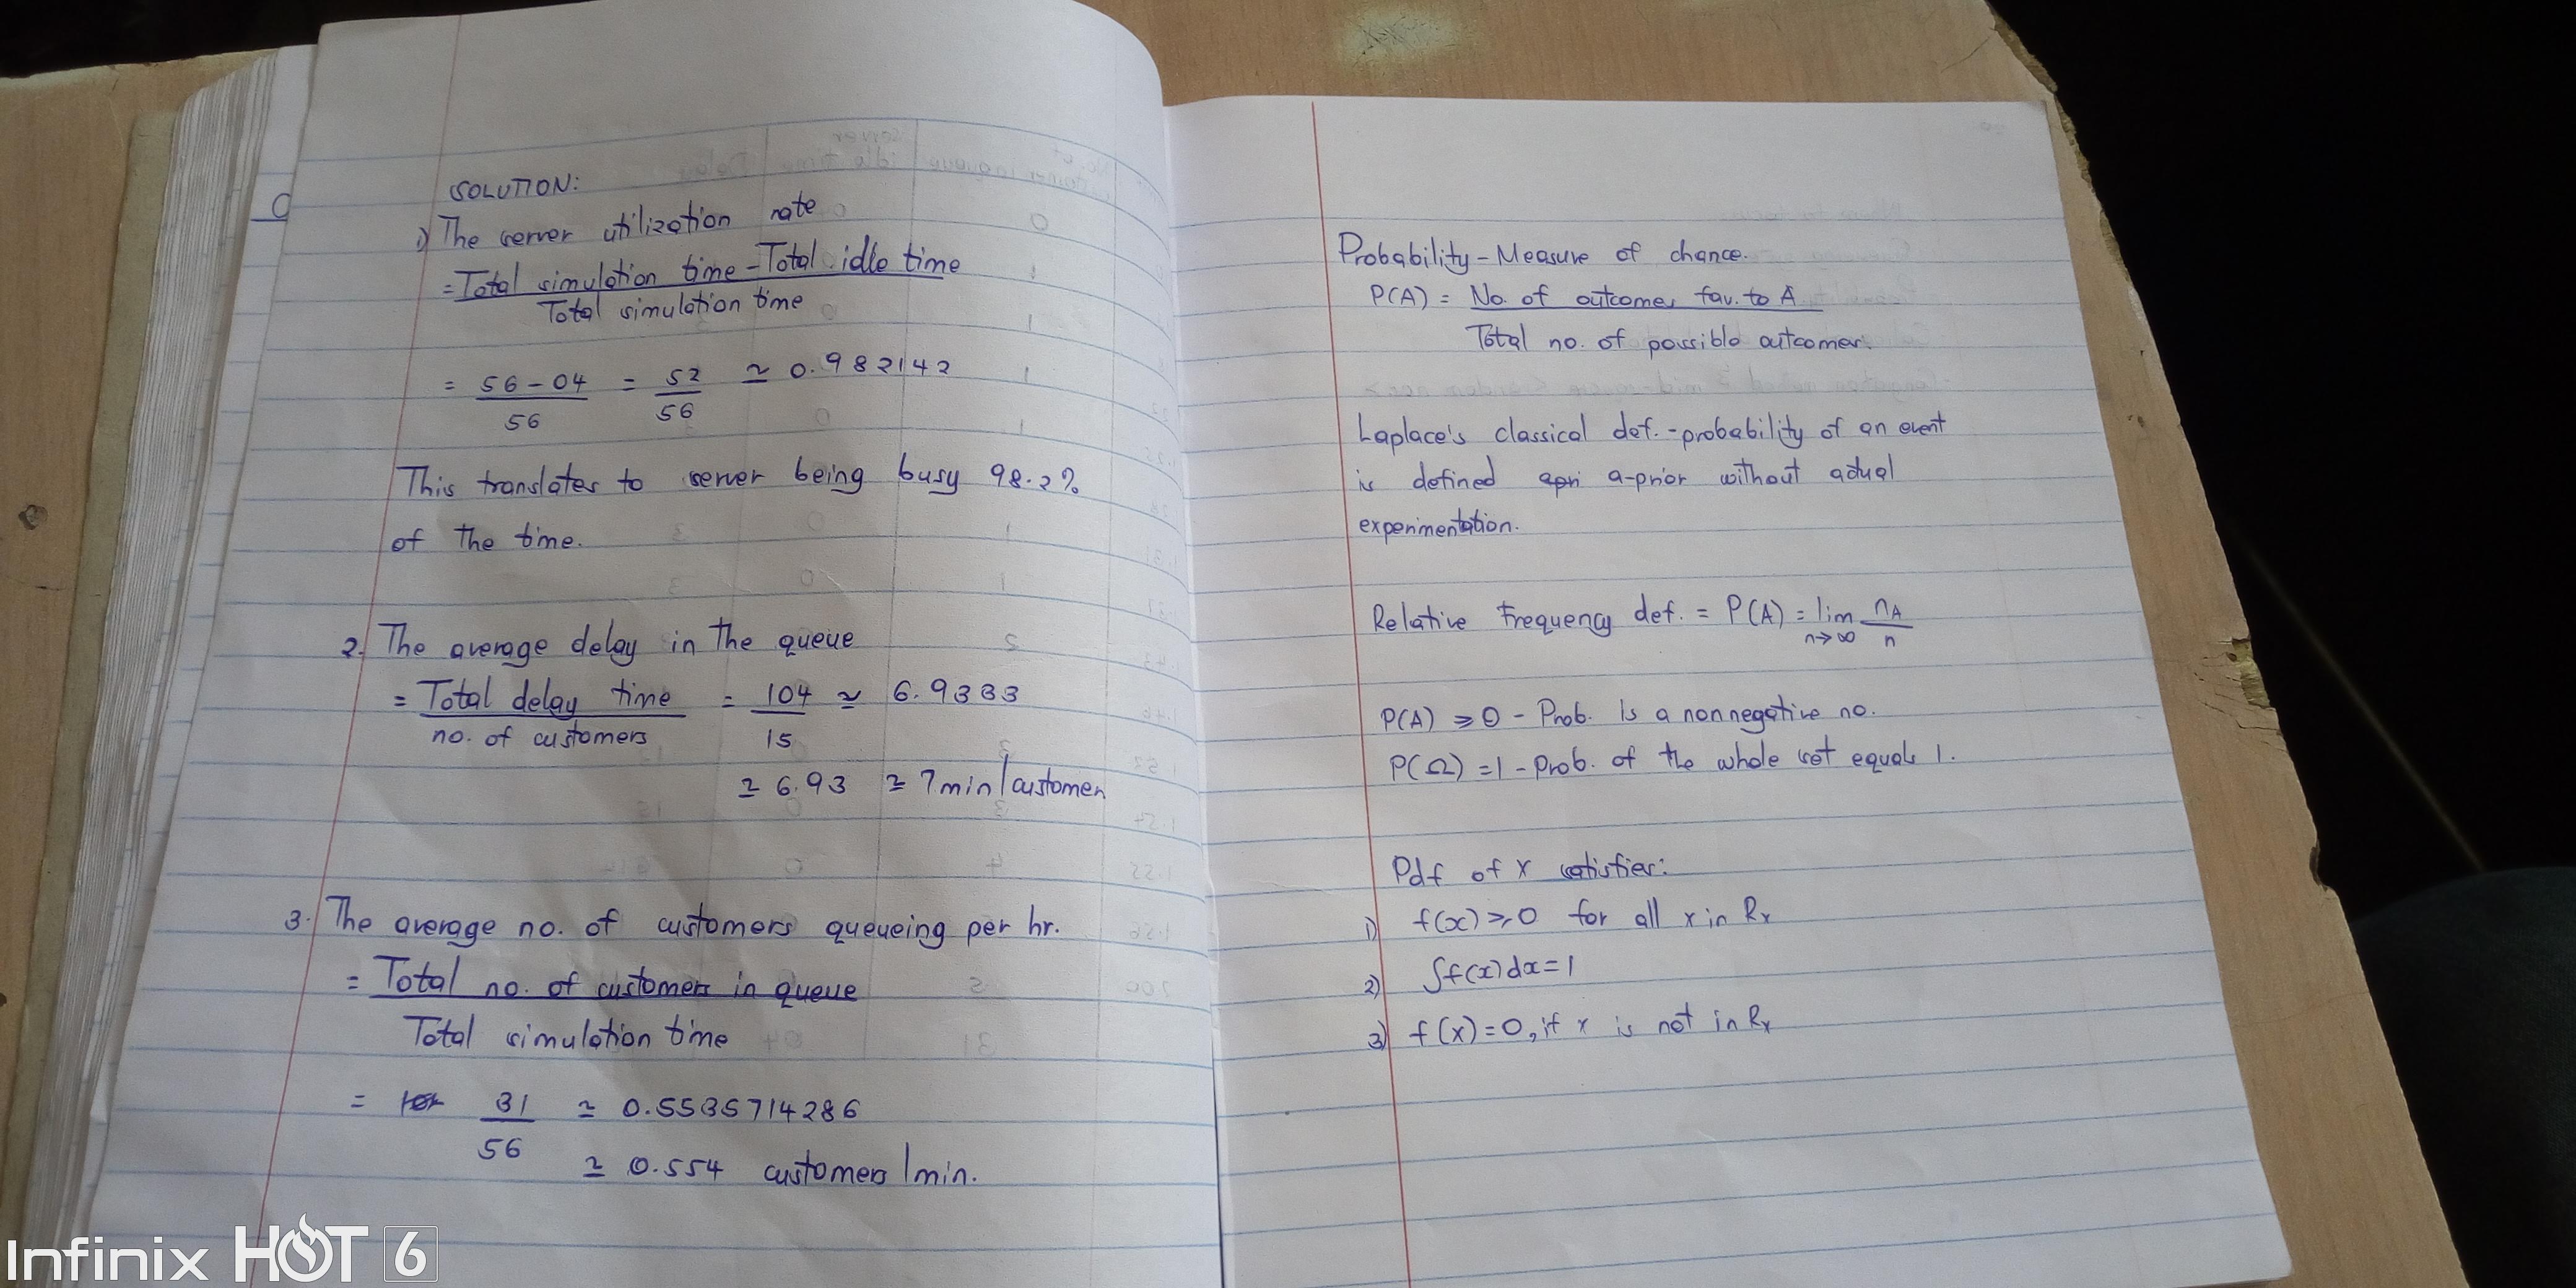 SOLUTION:
1) The server utilization rate
= Total simulation time - Total idle time
Total simulation time
= 56 - 04 = 52 ≃ 0.982142
56 56
This translates to server being busy 98.2%
of the time.
2. The average delay in the queue
= Total delay time = 104 ≃ 6.9333
no. of customers 15
≃ 6.93 ≃ 7min/customer
3. The average no. of customers queueing per hr.
= Total no. of customers in queue
Total simulation time
= 31 ≃ 0.5535714286
56
≃ 0.554 customers/min.
Probability - Measure of chance.
P(A) = No. of outcomes fav. to A
Total no. of possible outcomes.
Laplace's classical def. - probability of an event
is defined apri a-prior without actual
experimentation.
Relative Frequency def. = P(A) = lim nA
n→∞ n
P(A) ≥ 0 - Prob. is a nonnegative no.
P(Ω) = 1 - Prob. of the whole set equals 1.
Pdf of X satisfies:
1) f(x) ≥ 0 for all x in Rx
2) ∫f(x)dx = 1
3) f(x) = 0, if x is not in Rx
Infinix HOT 6